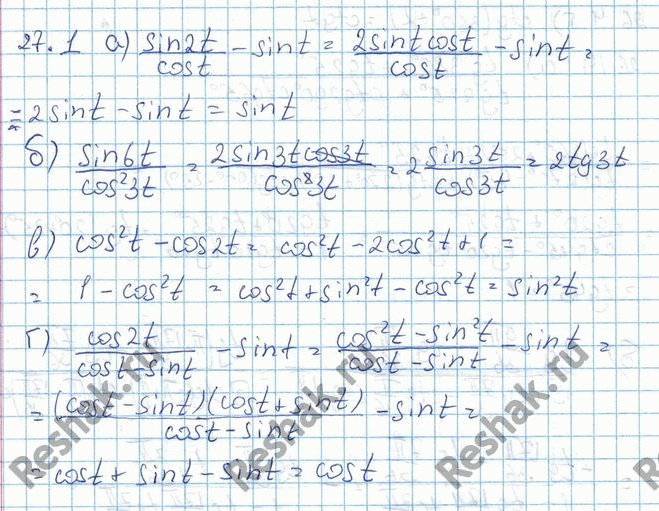 27.1 а) sin2t/cost - sint = 2sintcost/cost - sint =
= 2sint - sint = sint
б) sin6t/cos²3t = 2sin3tcos3t/cos²3t = 2 sin3t/cos3t = 2tg3t
в) cos²t - cos2t = cos²t - 2cos²t + 1 =
= 1 - cos²t = cos²t + sin²t - cos²t = sin²t
г) cos2t/cost-sint - sint = cos²t - sin²t/cost - sint - sint =
= (cost - sint)(cost + sint)/cost - sint - sint =
= cost + sint - sint = cost
Reshak.ru
Reshak.ru
Reshak.ru